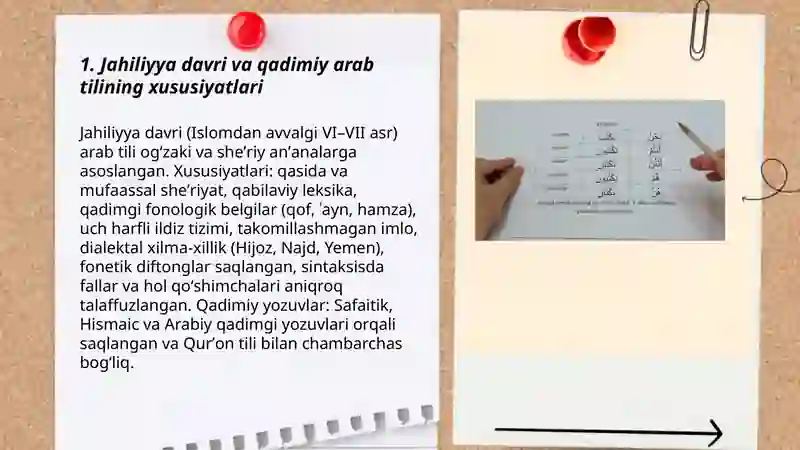 1. Jahiliyya davri va qadimiy arab
tilining xususiyatlari
Jahiliyya davri (Islomdan avvalgi VI–VII asr)
arab tili ogʻzaki va sheʼriy anʼanalarga
asoslangan. Xususiyatlari: qasida va
mufaassal sheʼriyat, qabilaviy leksika,
qadimgi fonologik belgilar (qof, ʿayn, hamza),
uch harfli ildiz tizimi, takomillashmagan imlo,
dialektal xilma-xillik (Hijoz, Najd, Yemen),
fonetik diftonglar saqlangan, sintaksisda
fallar va hol qoʻshimchalari aniqroq
talaffuzlangan. Qadimiy yozuvlar: Safaitik,
Hismaic va Arabiy qadimgi yozuvlari orqali
saqlangan va Qurʼon tili bilan chambarchas
bogʻliq.
نحن
أنتم
أنتن
هم
هن